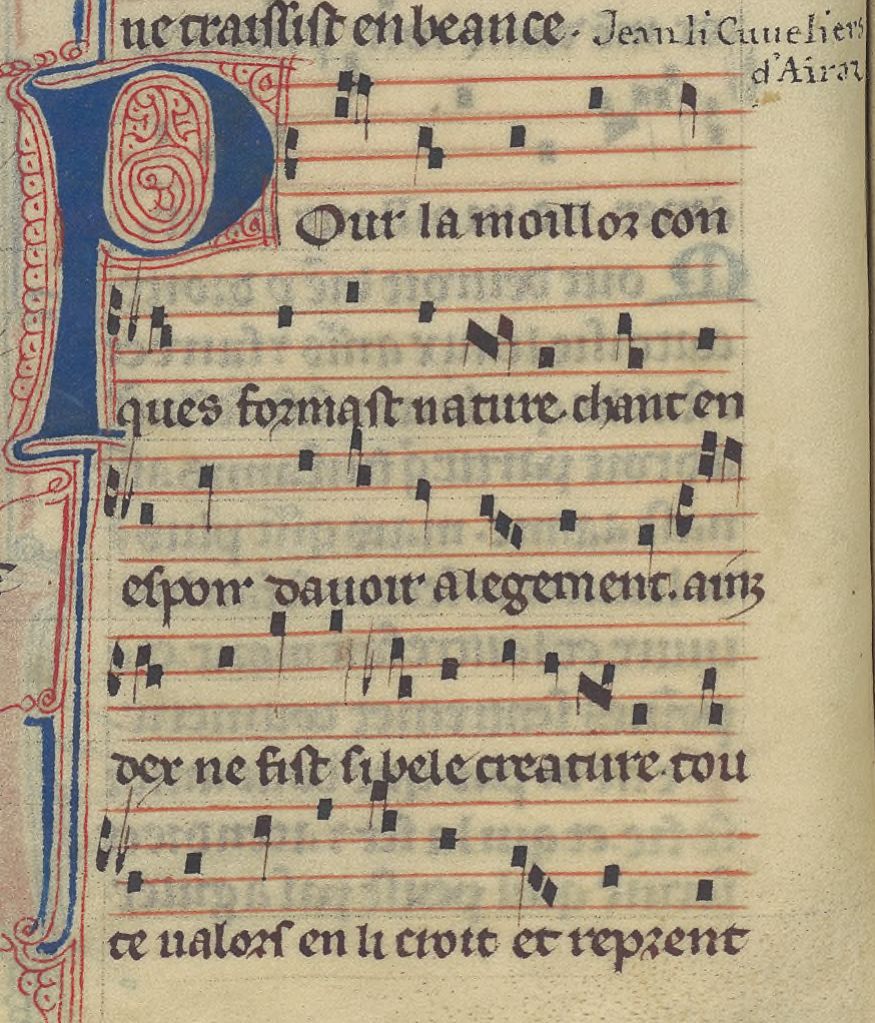 ne traissist en beance. Jean li Cuveliers
d'Airaz
POur la moillor con
ques formast nature. chant en
espoir davoir alegement. ainz
der ne fist si bele creature. tou
te valors en li croit et reprent